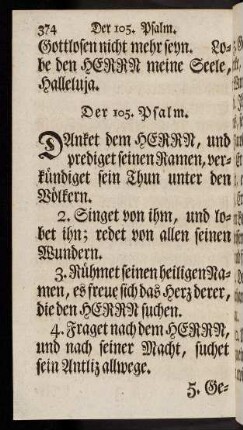 374 Der 105. Psalm.
Gottlosen nicht mehr seyn. Lo-
be den HERRN meine Seele,
Halleluja.
Der 105. Psalm.
DAnket dem HERRN, und
prediget seinen Namen, ver-
kündiget sein Thun unter den
Völkern.
2. Singet von ihm, und lo-
bet ihn; redet von allen seinen
Wundern.
3. Rühmet seinen heiligen Na-
men, es freue sich das Herz derer,
die den HERRN suchen.
4. Fraget nach dem HERRN,
und nach seiner Macht, suchet
sein Antliz allwege.
5. Ge-